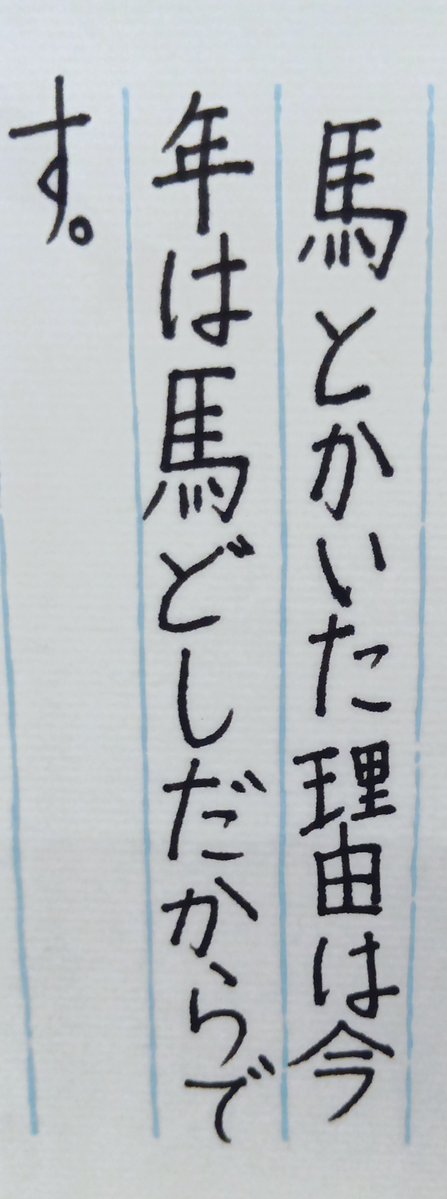 馬とかいた理由は今
年は馬どしだからで
す。